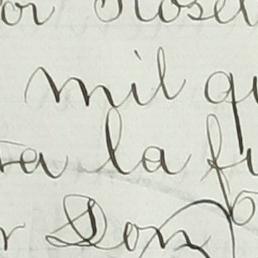 or Rosel
mil qu
ra la fu
r Don